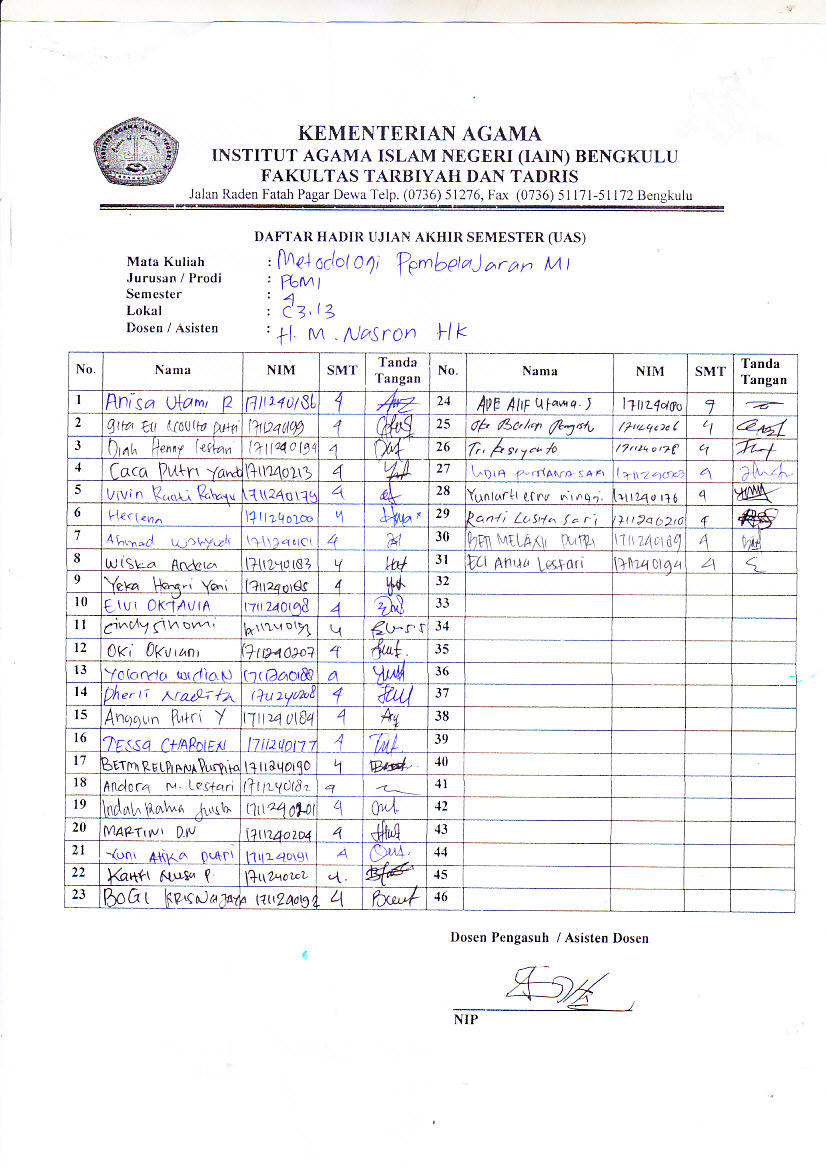 KEMENTERIAN AGAMA
INSTITUT AGAMA ISLAM NEGERI (IAIN) BENGKULU
FAKULTAS TARBIYAH DAN TADRIS
Jalan Raden Fatah Pagar Dewa Telp. (0736) 51276, Fax (0736) 51171-51172 Bengkulu
DAFTAR HADIR UJIAN AKHIR SEMESTER (UAS)
Mata Kuliah : Metodologi Pembelajaran MI
Jurusan / Prodi : PGMI
Semester : 4
Lokal : C3.13
Dosen / Asisten : H. M. Nasron HK
No. Nama NIM SMT Tanda Tangan No. Nama NIM SMT Tanda Tangan
1 Anisa Utami R 1711240186 4 24 ADE ALIF Utama.S 1711240180 4
2 1711240199 4 25 1711240206 4
3 Diah Henny Lestari 1711240194 4 26 Tri 1711240178 4
4 Caca Putri Yanda 1711240213 4 27 4
5 Vivin Ranti Rahayu 1711240179 4 28 Yuniarti 1711240176 4
6 Herlena 1711240200 4 29 Ranti Lusita Sari 1711240210 4
7 Ahmad 4 30 MELAXII PUTRI 1711240189 4
8 Wiska Andela 1711240183 4 31 ECI Anisa Lestari 1711240194 4
9 Yeka Hengri Yeni 1711240185 4 32
10 ELVI OKTAVIA 1711240198 4 33
11 Cindy sinomi 4 34
12 OKI OKVIANI 1711240207 4 35
13 Yolanda 1711240188 4 36
14 Pherli Nadita 1711240208 4 37
15 Anggun Putri Y 1711240184 4 38
16 TESSA CHARDIEN 1711240177 4 39
17 1711240190 4 40
18 Andora M. Lestari 1711240182 4 41
19 Indah 1711240201 4 42
20 MARTINI D.N 1711240204 4 43
21 Yuni Atika Putri 1711240191 4 44
22 Nusa P. 1711240202 4. 45
23 BOGI KRISNA JAYA 1711240192 4 46
Dosen Pengasuh / Asisten Dosen
NIP